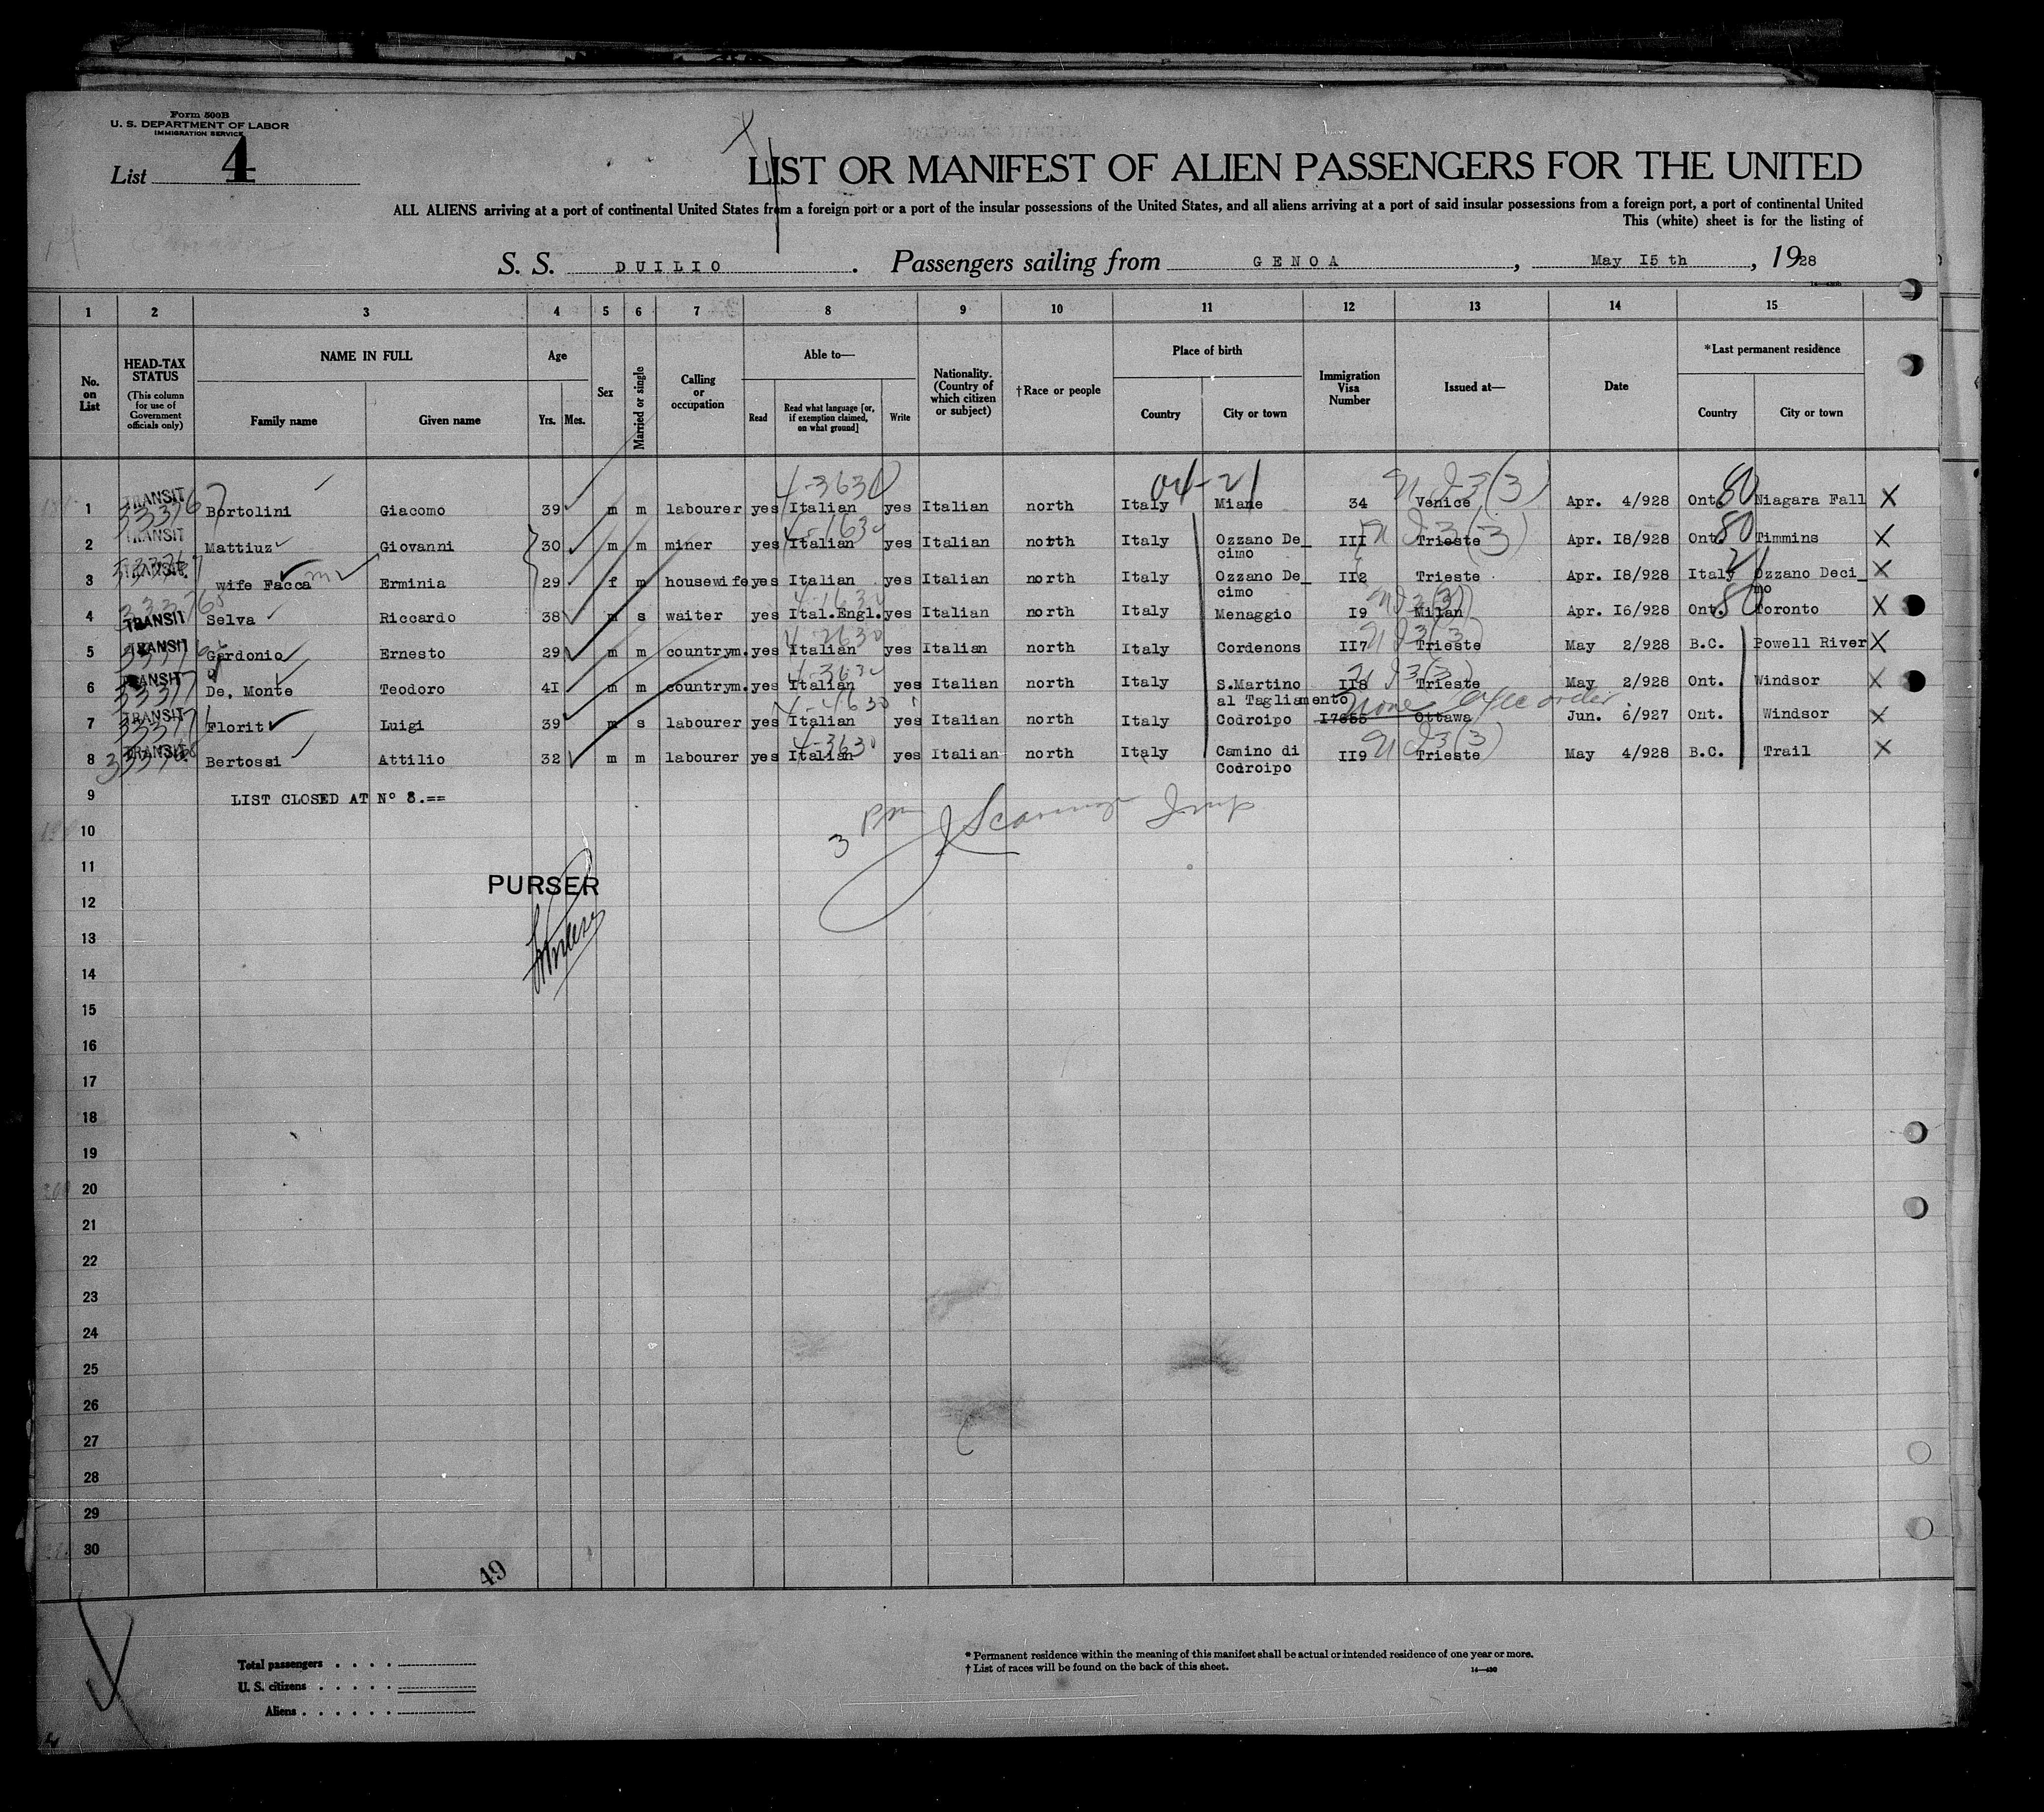 Form 500B
U. S. DEPARTMENT OF LABOR
IMMIGRATION SERVICE
List 4
LIST OR MANIFEST OF ALIEN PASSENGERS FOR THE UNITED
ALL ALIENS arriving at a port of continental United States from a foreign port or a port of the insular possessions of the United States, and all aliens arriving at a port of said insular possessions from a foreign port, a port of continental United
This (white) sheet is for the listing of
S. S. DUILIO. Passengers sailing from GENOA, May I5 th, 1928
1 2 3 4 5 6 7 8 9 10 11 12 13 14 15
No. on List
HEAD-TAX STATUS
(This column for use of Government officials only)
NAME IN FULL
Family name Given name
Age
Yrs. Mos.
Sex
Married or single
Calling or occupation
Able to—
Read
Read what language [or, if exemption claimed, on what ground]
Write
Nationality. (Country of which citizen or subject)
†Race or people
Place of birth
Country City or town
Immigration Visa Number
Issued at—
Date
*Last permanent residence
Country City or town
1 TRANSIT Bortolini Giacomo 39 m m labourer yes Italian yes Italian north Italy Miane 34 Venice Apr. 4/928 Ont. 80 Niagara Fall X
2 TRANSIT Mattiuz Giovanni 30 m m miner yes Italian yes Italian north Italy Ozzano De_cimo III Trieste Apr. I8/928 Ont. 80 Timmins X
3 TRANSIT wife Facca Erminia 29 f m housewife yes Italian yes Italian north Italy Ozzano De_cimo II2 Trieste Apr. I8/928 Italy 21 Ozzano Deci_mo X
4 TRANSIT Selva Riccardo 38 m s waiter yes Ital.Engl. yes Italian north Italy Menaggio I9 Milan Apr. I6/928 Ont. 80 Toronto X
5 TRANSIT Gardonio Ernesto 29 m m countrym. yes Italian yes Italian north Italy Cordenons II7 Trieste May 2/928 B.C. Powell River X
6 TRANSIT De. Monte Teodoro 4I m m countrym. yes Italian yes Italian north Italy S.Martino al Tagliamento II8 Trieste May 2/928 Ont. Windsor X
7 TRANSIT Florit Luigi 39 m s labourer yes Italian yes Italian north Italy Codroipo I7655 none Ottawa order Jun. 6/927 Ont. Windsor X
8 TRANSIT Bertossi Attilio 32 m m labourer yes Italian yes Italian north Italy Camino di Codroipo II9 Trieste May 4/928 B.C. Trail X
9 LIST CLOSED AT N° 8.==
10
11
PURSER
12
13
14
15
16
17
18
19
20
21
22
23
24
25
26
27
28
29
30
49
Total passengers
U. S. citizens
Aliens
* Permanent residence within the meaning of this manifest shall be actual or intended residence of one year or more.
† List of races will be found on the back of this sheet.
14—430